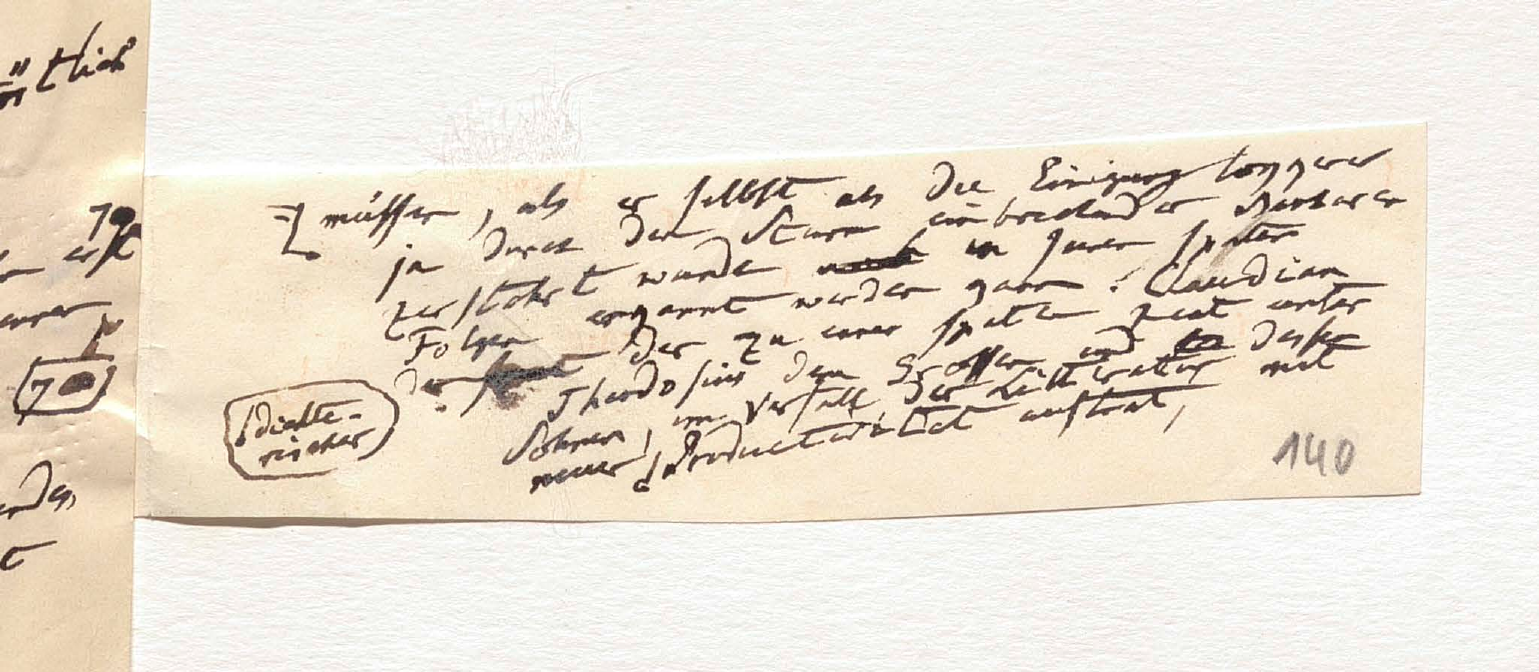 müsser, als er selbst als die Einigung
ja durch den Sturm einbrechender Barbaren
zerstöhrt wurde in ihren spaten
Folgen erkannt werden kann. Claudian
der zu einer spaten Zeit unter
Theodosius dem Großen und dessen
Söhnen, im Verfall der Litteratur mit
neuer Productivität auftrat,
dichte-
rischer
140
tlich
70